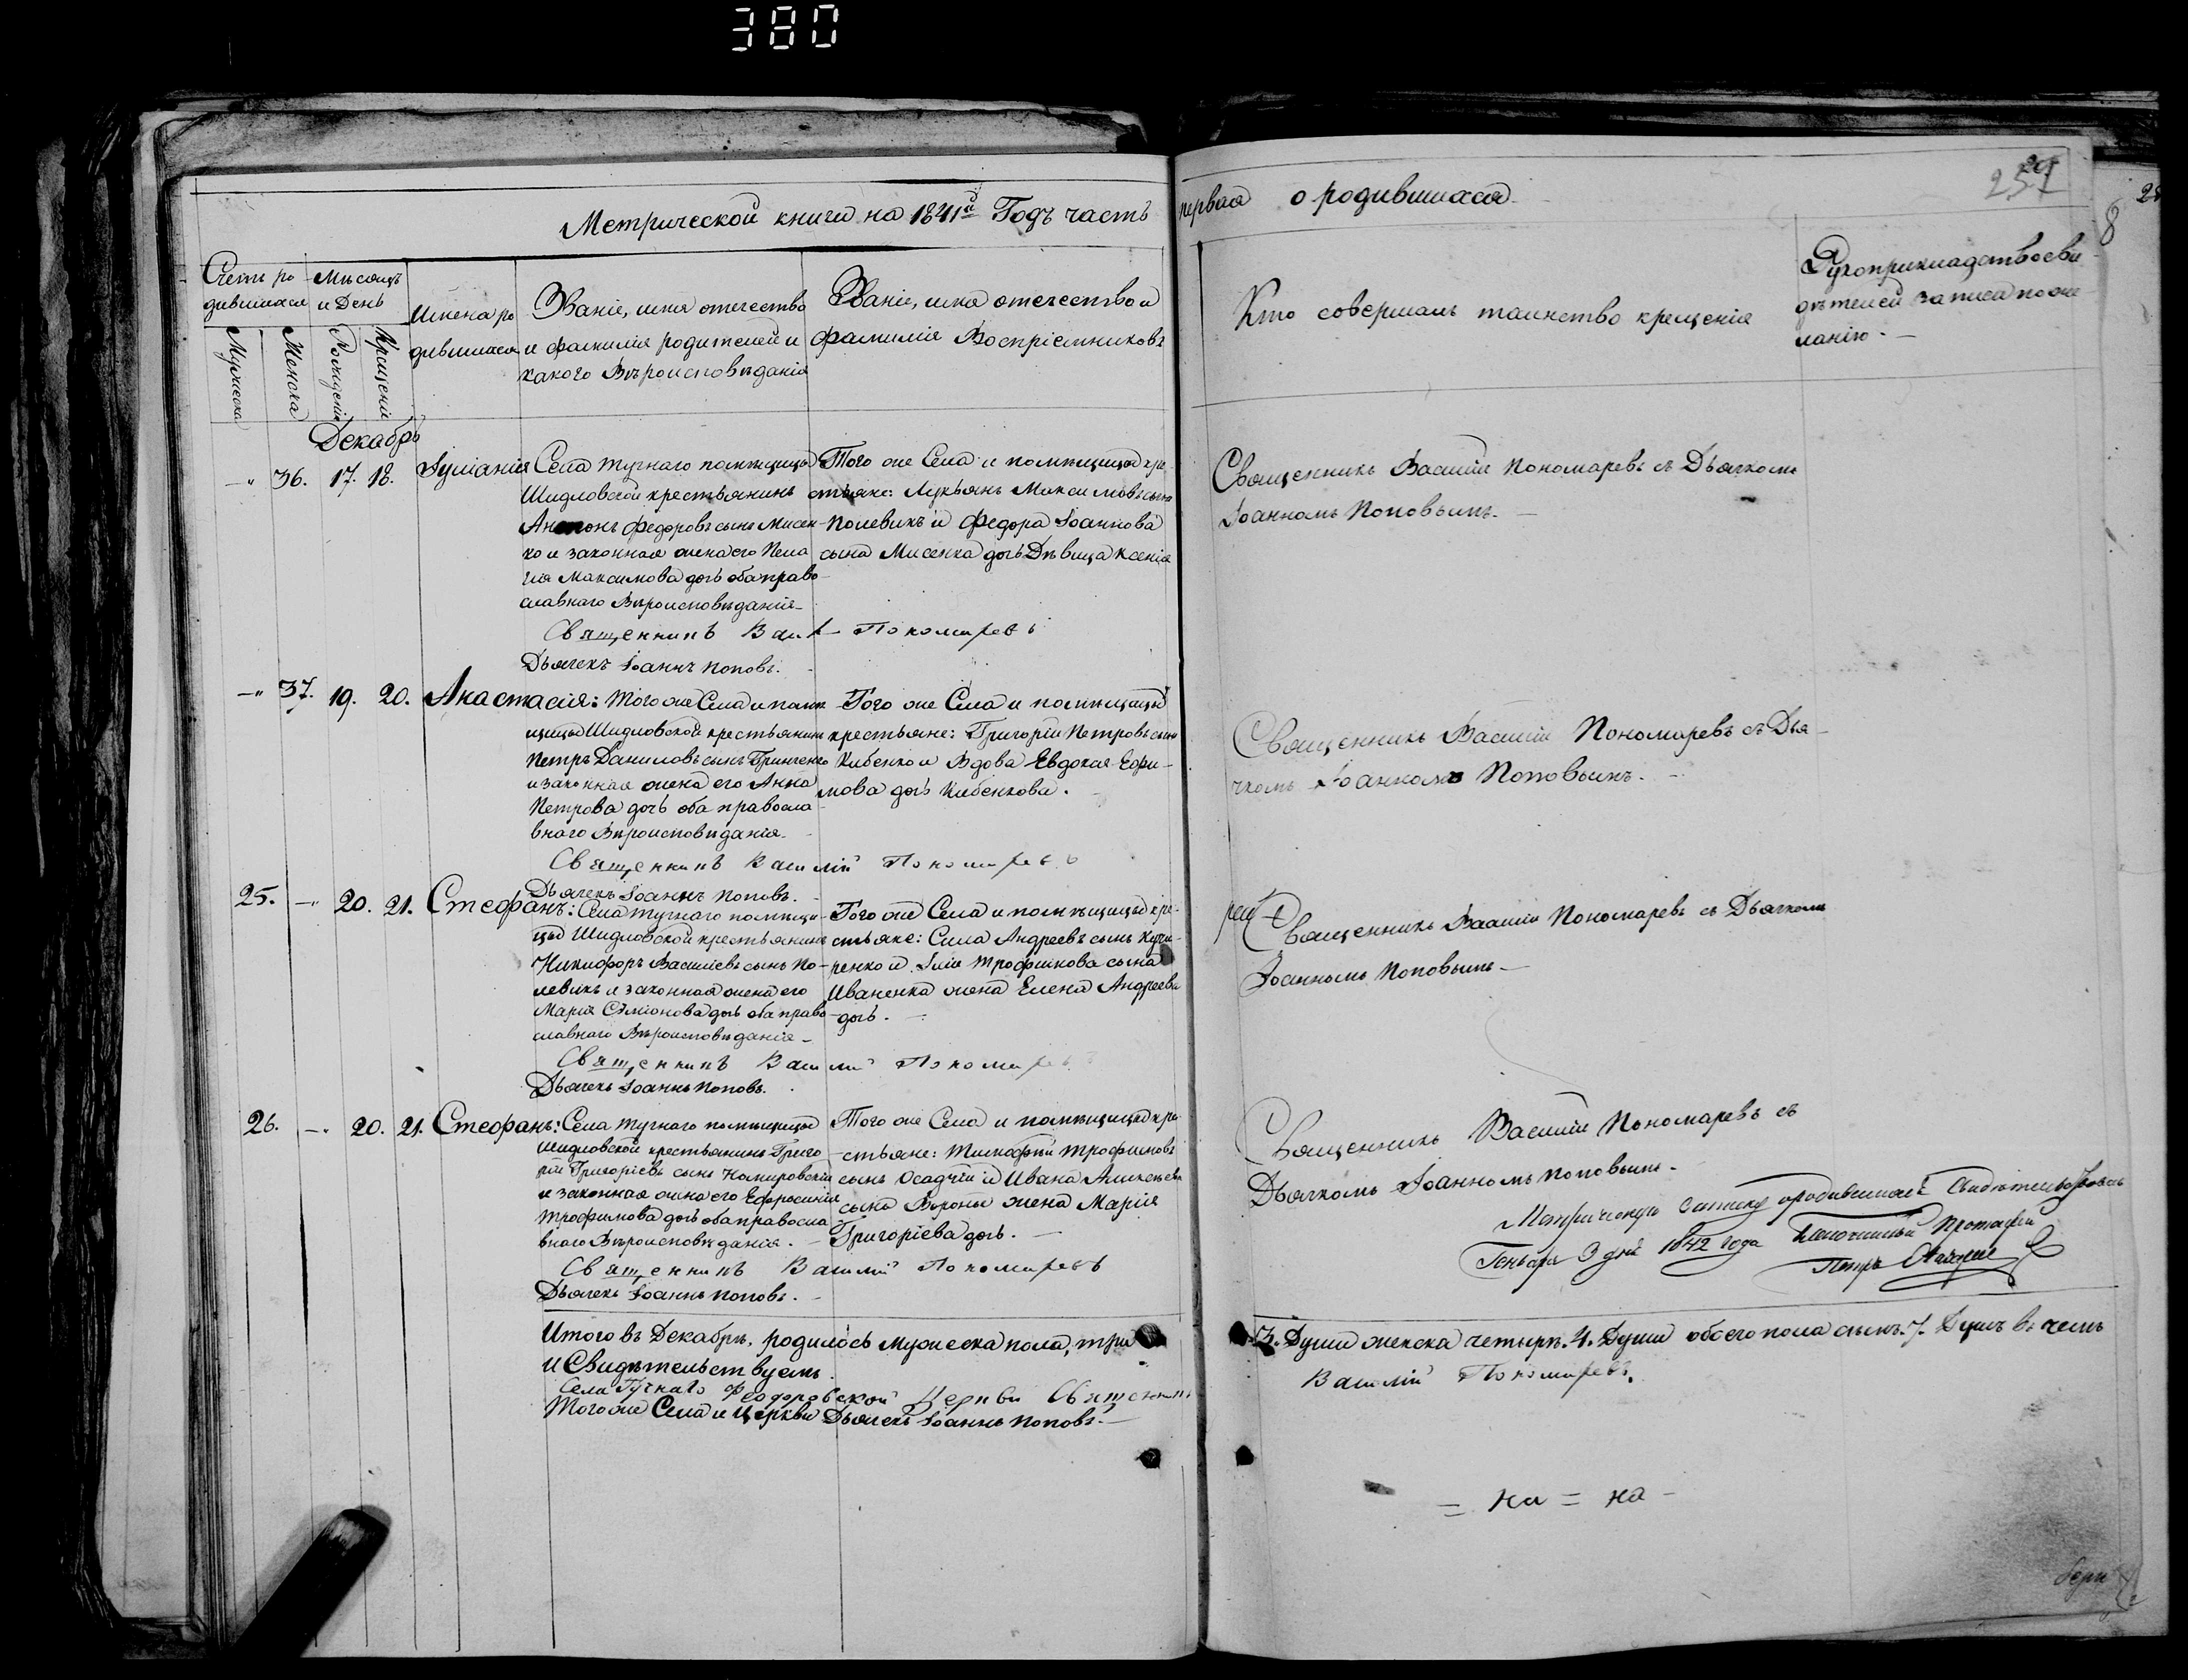 380
Метрической книги на 1841й Годъ часть первая о родившихся
251
Счетъ ро
дившихся
Мѣсяцъ
и День
Имена ро
дившихся
Званіе, имя отечество
и фамилія родителей и
какого Вѣроисповѣданія
Званіе, имя отечество и
фамилія Воспріемниковъ
Кто совершалъ таинство крещенія
Рукоприкладство сви
дѣтелей записа по же
ланію.
Мужеска
Женска
Рожденія
Крещенія
Декабрь
36. 17. 18. Іуліанія
Села Тучнаго помѣщицы
Шидловской крестьянинъ
Антонъ Федоровъ сынъ Мисен
ко и законная жена его Пела
гія Максимова дочь оба право
славнаго Вѣроисповѣданія
Священникъ Васи Пономаревъ
Дьячекъ Іоаннъ Поповъ.
Того же Села и помѣщицы кре
стьяне: Лукьянъ Максимовъ сынъ
Полевикъ и Федора Іоаннова
сына Мисенка дочь Дѣвица Ксенія
Священникъ Василій Пономаревъ съ Дьячкомъ
Іоанномъ Поповымъ.
37. 19. 20. Анастасія:
Того же Села и помѣ
щицы Шидловской крестьянинъ
Петръ Даниловъ сынъ Гринченко
и законная жена его Анна
Петрова дочь оба правосла
внаго Вѣроисповѣданія
Священникъ Василій Пономаревъ
Дьячекъ Іоаннъ Поповъ.
Того же Села и помѣщицы
крестьяне: Григорій Петровъ сынъ
Кибенко и Вдова Евдокія Ефи
мова дочь Кибенкова.
Священникъ Василій Пономаревъ съ Дья
чкомъ Іоанномъ Поповымъ.
25. 20. 21. Стефанъ:
Села Тучнаго помѣщи
цы Шидловской крестьянинъ
Никифоръ Василіевъ сынъ По
левикъ и законная жена его
Марія Симіонова дочь оба право
славнаго Вѣроисповѣданія
Священникъ Василій Пономаревъ
Дьячекъ Іоаннъ Поповъ.
Того же Села и помѣщицы кре
стьяне: Сила Андреевъ сынъ Кучи
ренко и Іліи Трофимова сына
Иваненка жена Елена Андреева
дочь.
Священникъ Василій Пономаревъ съ Дьячкомъ
Іоанномъ Поповымъ
26. 20. 21. Стефанъ:
Села Тучнаго помѣщицы
Шидловской крестьянинъ Григо
рій Григоріевъ сынъ Комировскій
и законная жена его Ефросинія
Трофимова дочь оба правосла
внаго Вѣроисповѣданія.
Священникъ Василій Пономаревъ
Дьячекъ Іоаннъ Поповъ.
Того же Села и помѣщицы кре
стьяне: Тимофій Трофимовъ
сынъ Осадчій и Ивана Алексѣева
сына Вороны жена Марія
Григоріева дочь.
Священникъ Василій Пономаревъ съ
Дьячкомъ Іоанномъ Поповымъ.
Метрическую записку о родившихся Свидѣтельствовалъ
Генваря 9 дня 1842 года Благочинный Протоіерей
Петръ
Итого въ Декабрѣ, родилось мужеска пола, три
3. Души женска четыре. 4. Души обоего пола семь. 7. Душъ въ чемъ
И Свидѣтельствуемъ
Села Тучнаго Феодоровской Церкви Священникъ
Василій Пономаревъ.
Того же Села и Церкви Дьячекъ Іоаннъ Поповъ.
= на = на